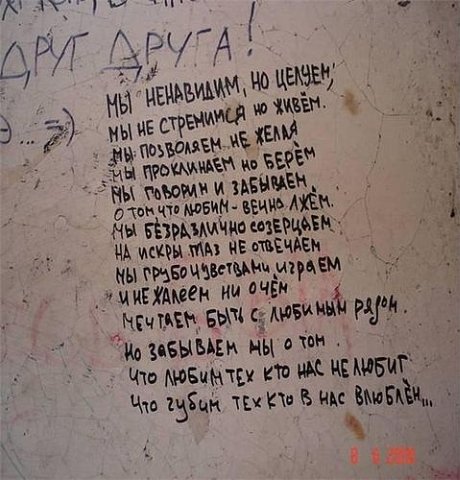 ДРУГ ДРУГА!
=)
МЫ НЕНАВИДИМ, НО ЦЕЛУЕМ,
МЫ НЕ СТРЕМИМСЯ НО ЖИВЁМ.
МЫ ПОЗВОЛЯЕМ НЕ ЖЕЛАЯ
МЫ ПРОКЛИНАЕМ НО БЕРЁМ
МЫ ГОВОРИМ И ЗАБЫВАЕМ
О ТОМ ЧТО ЛЮБИМ - ВЕЧНО ЛЖЁМ.
МЫ БЕЗРАЗЛИЧНО СОЗЕРЦАЕМ
НА ИСКРЫ ГЛАЗ НЕ ОТВЕЧАЕМ
МЫ ГРУБО ЧУВСТВАМИ ИГРАЕМ
И НЕ ЖАЛЕЕМ НИ О ЧЁМ
МЕЧТАЕМ БЫТЬ С ЛЮБИМЫМ РЯДОМ.
НО ЗАБЫВАЕМ МЫ О ТОМ
ЧТО ЛЮБИМ ТЕХ КТО НАС НЕ ЛЮБИТ
ЧТО ГУБИМ ТЕХ КТО В НАС ВЛЮБЛЁН...